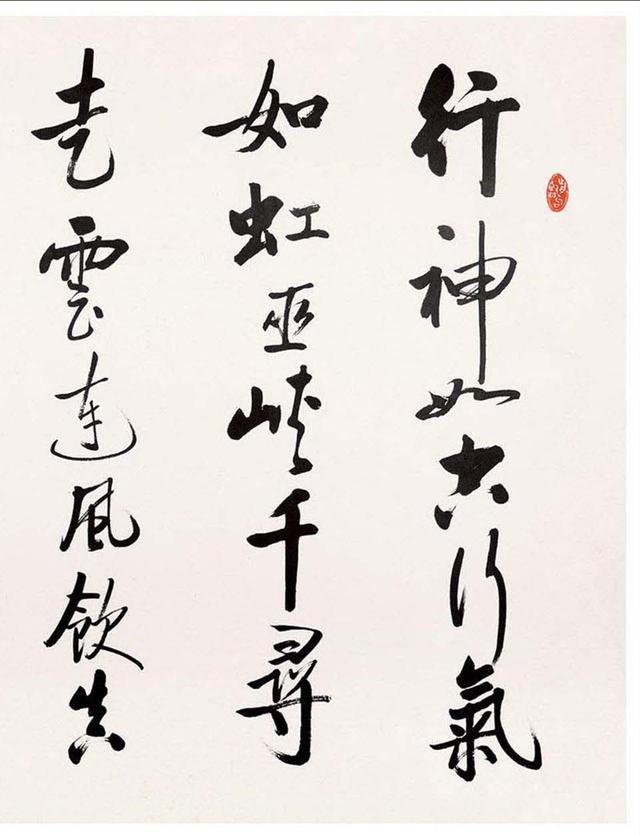 行神如空行氣
如虹巫峽千尋
走雲連風飲真